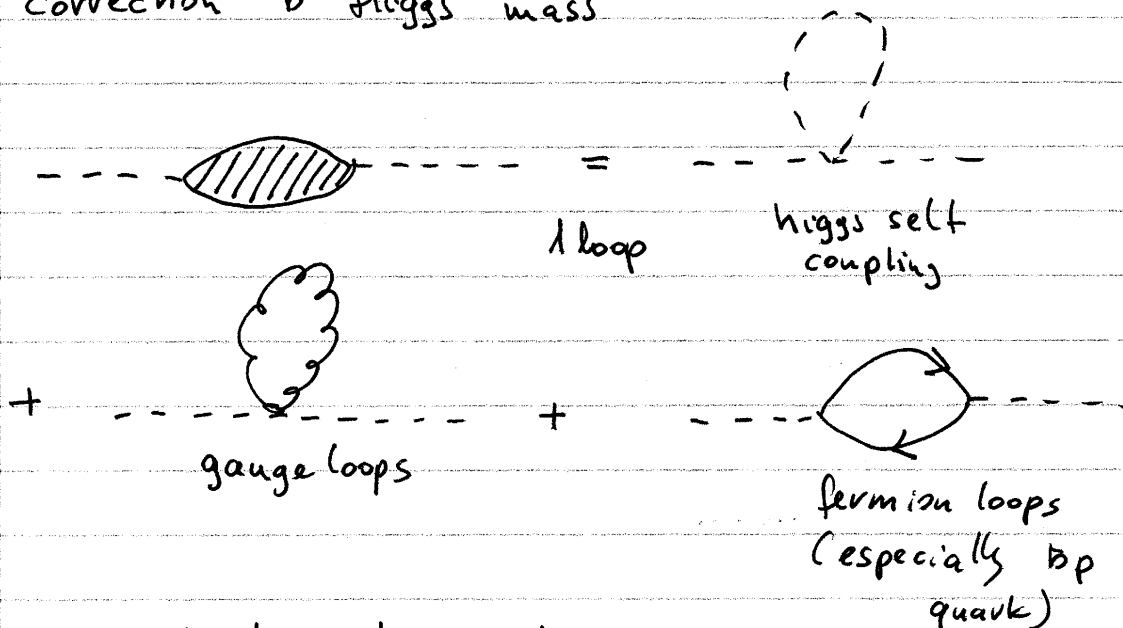 correction to Higgs mass
=
1 loop
higgs self
coupling
+
+
gauge loops
fermion loops
(especially top
quark)